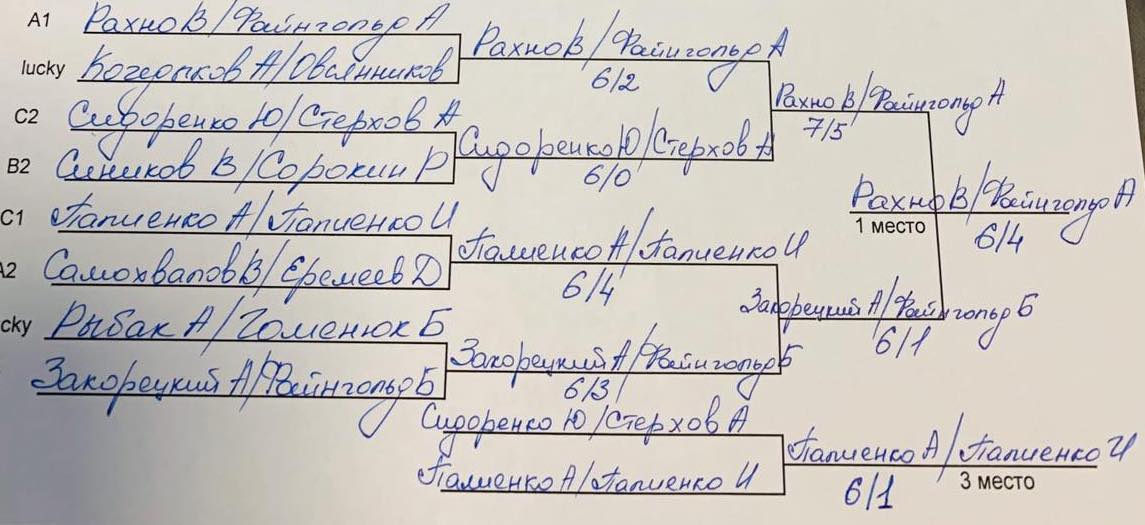 A1 Рахно В/Файнгольд А
lucky Когедпков А/Овсянников
C2 Сидоренко Ю/Стерхов А
B2 Сиников В/Сорокин Р
C1 Папиенко А/Папиенко И
A2 Самохвалов В/Еремеев Д
cky Рыбак А/Гоменюк Б
Закорецкий А/Файнгольд Б
Рахно В/Файнгольд А
6/2
Сидоренко Ю/Стерхов А
6/0
Папиенко А/Папиенко И
6/4
Закорецкий А/Файнгольд Б
6/3
Рахно В/Файнгольд А
7/5
Закорецкий А/Файнгольд Б
6/1
Рахно В/Файнгольд А
1 место
6/4
Сидоренко Ю/Стерхов А
Папиенко А/Папиенко И
Папиенко А/Папиенко И
6/1
3 место